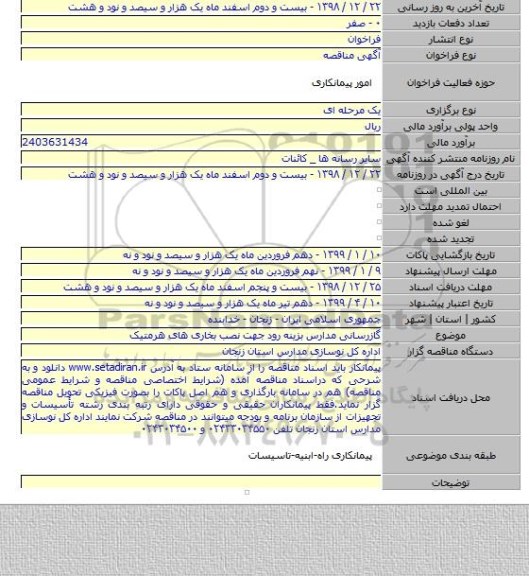 تاریخ آخرین به روز رسانی ۲۲ / ۱۲ / ۱۳۹۸ - بیست و دوم اسفند ماه یک هزار و سیصد و نود و هشت
تعداد دفعات بازدید ۰ - صفر
نوع انتشار فراخوان
نوع فراخوان آگهی مناقصه
حوزه فعالیت فراخوان امور پیمانکاری
نوع برگزاری یک مرحله ای
واحد پولی برآورد مالی ریال
برآورد مالی 2403631434
نام روزنامه منتشر کننده آگهی سایر رسانه ها _ کائنات
تاریخ درج آگهی در روزنامه ۲۲ / ۱۲ / ۱۳۹۸ - بیست و دوم اسفند ماه یک هزار و سیصد و نود و هشت
بین المللی است
احتمال تمدید مهلت دارد
لغو شده
تجدید شده
تاریخ بازگشایی پاکات ۱۰ / ۱ / ۱۳۹۹ - دهم فروردین ماه یک هزار و سیصد و نود و نه
مهلت ارسال پیشنهاد ۹ / ۱ / ۱۳۹۹ - نهم فروردین ماه یک هزار و سیصد و نود و نه
مهلت دریافت اسناد ۲۵ / ۱۲ / ۱۳۹۸ - بیست و پنجم اسفند ماه یک هزار و سیصد و نود و هشت
تاریخ اعتبار پیشنهاد ۱۰ / ۴ / ۱۳۹۹ - دهم تیر ماه یک هزار و سیصد و نود و نه
کشور | استان | شهر جمهوری اسلامی ایران - زنجان - خدابنده
موضوع گازرسانی مدارس بزینه رود جهت نصب بخاری های هرمتیک
دستگاه مناقصه گزار اداره کل نوسازی مدارس استان زنجان
محل دریافت اسناد پیمانکار باید اسناد مناقصه را از سامانه ستاد به آدرس www.setadiran.ir دانلود و به
شرحی که دراسناد مناقصه آمده (شرایط اختصاصی مناقصه و شرایط عمومی
مناقصه) هم در سامانه بارگذاری و هم اصل پاکات را بصورت فیزیکی تحویل مناقصه
گزار نماید.فقط پیمانکاران حقیقی و حقوقی دارای رتبه بندی رشته تأسیسات و
تجهیزات از سازمان برنامه و بودجه میتوانند در مناقصه شرکت نمایند اداره کل نوسازی
مدارس استان زنجان تلفن ۰۲۴۳۳۰۳۴۵۵۰ و ۰۲۴۳۰۳۴۵۰۰
طبقه بندی موضوعی پیمانکاری راه-ابنیه-تاسیسات
توضیحات